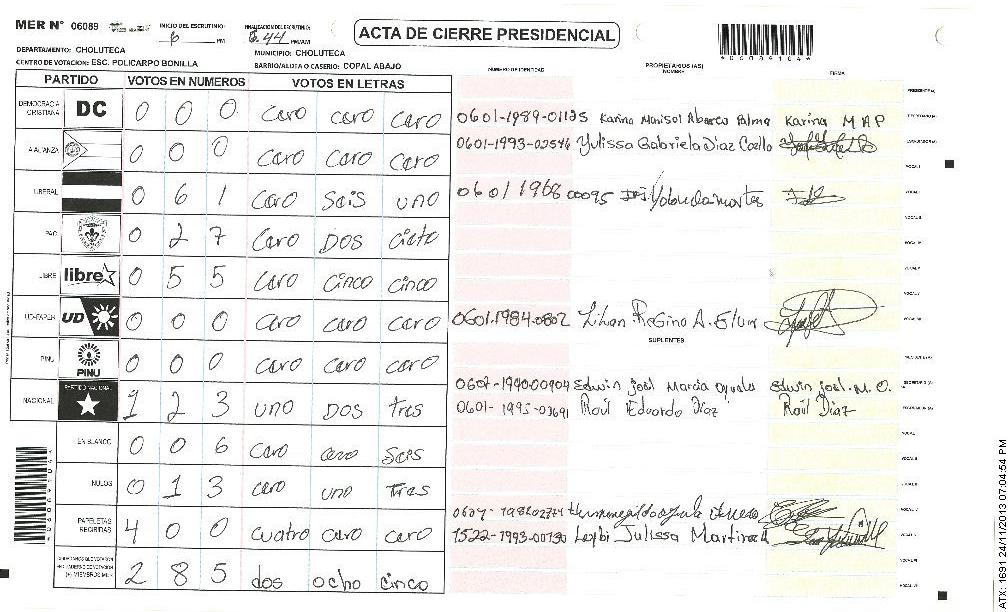 MER N° 06089 INICIO DEL ESCRUTINIO: 6 PM FINALIZACION DEL ESCRUTINIO: 6.44 PM/AM
ACTA DE CIERRE PRESIDENCIAL
DEPARTAMENTO: CHOLUTECA MUNICIPIO: CHOLUTECA
CENTRO DE VOTACION: ESC. POLICARPO BONILLA BARRIO/ALDEA O CASERIO: COPAL ABAJO
NÚMERO DE IDENTIDAD PROPIETARIOS (AS) NOMBRE FIRMA
PARTIDO VOTOS EN NUMEROS VOTOS EN LETRAS
DEMOCRACIA CRISTIANA DC 0 0 0 Cero cero cero
0601-1989-01125 Karina Marisol Abarca Palma Karina M A P
ALIANZA 0 0 0 Cero Cero Cero
0601-1993-02546 Yulissa Gabriela Diaz Coello
LIBERAL 0 6 1 Cero Seis uno
0601 1968 00095 Yolanda montes
PAC 0 2 7 Cero DOS ciete
LIBRE libre 0 5 5 Cero Cinco Cinco
UD-FAPER UD 0 0 0 Cero cero cero
0601-1984-0802 Lilian Regina A.
SUPLENTES
PINU PINU 0 0 0 Cero cero cero
Edwin joel Marcia Edwin joel. M. O.
NACIONAL PARTIDO NACIONAL 1 2 3 uno DOS tres
0601-1995-03691 Raúl Eduardo Díaz Raúl Díaz
EN BLANCO 0 0 6 Cero cero Seis
NULOS 0 1 3 cero uno tres
PAPELETAS RECIBIDAS 4 0 0 Cuatro cero cero
1522-1993-00730 Leybi Julissa Martinez
CIUDADANOS QUE VOTARON (+) MIEMBROS MER 2 8 5 dos ocho cinco
*06089104*
ATX: 1691 24/11/2013 07:04:54 PM